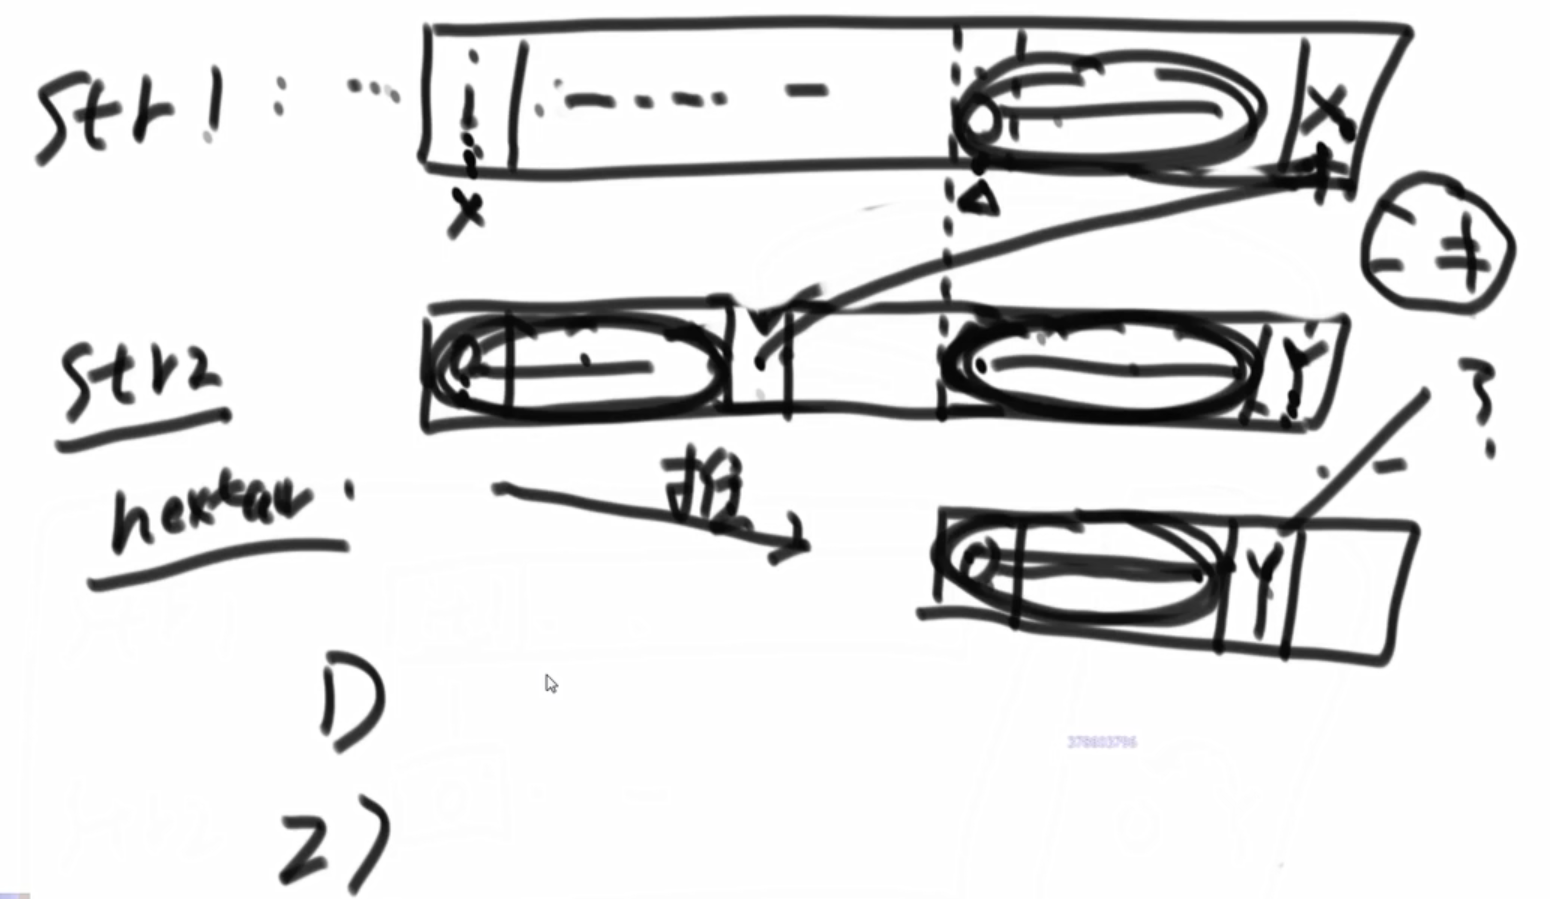 str1 :
i
X
X
Δ
str2
0
Y
nextarr
推
?
0
Y
1)
2)
379803796